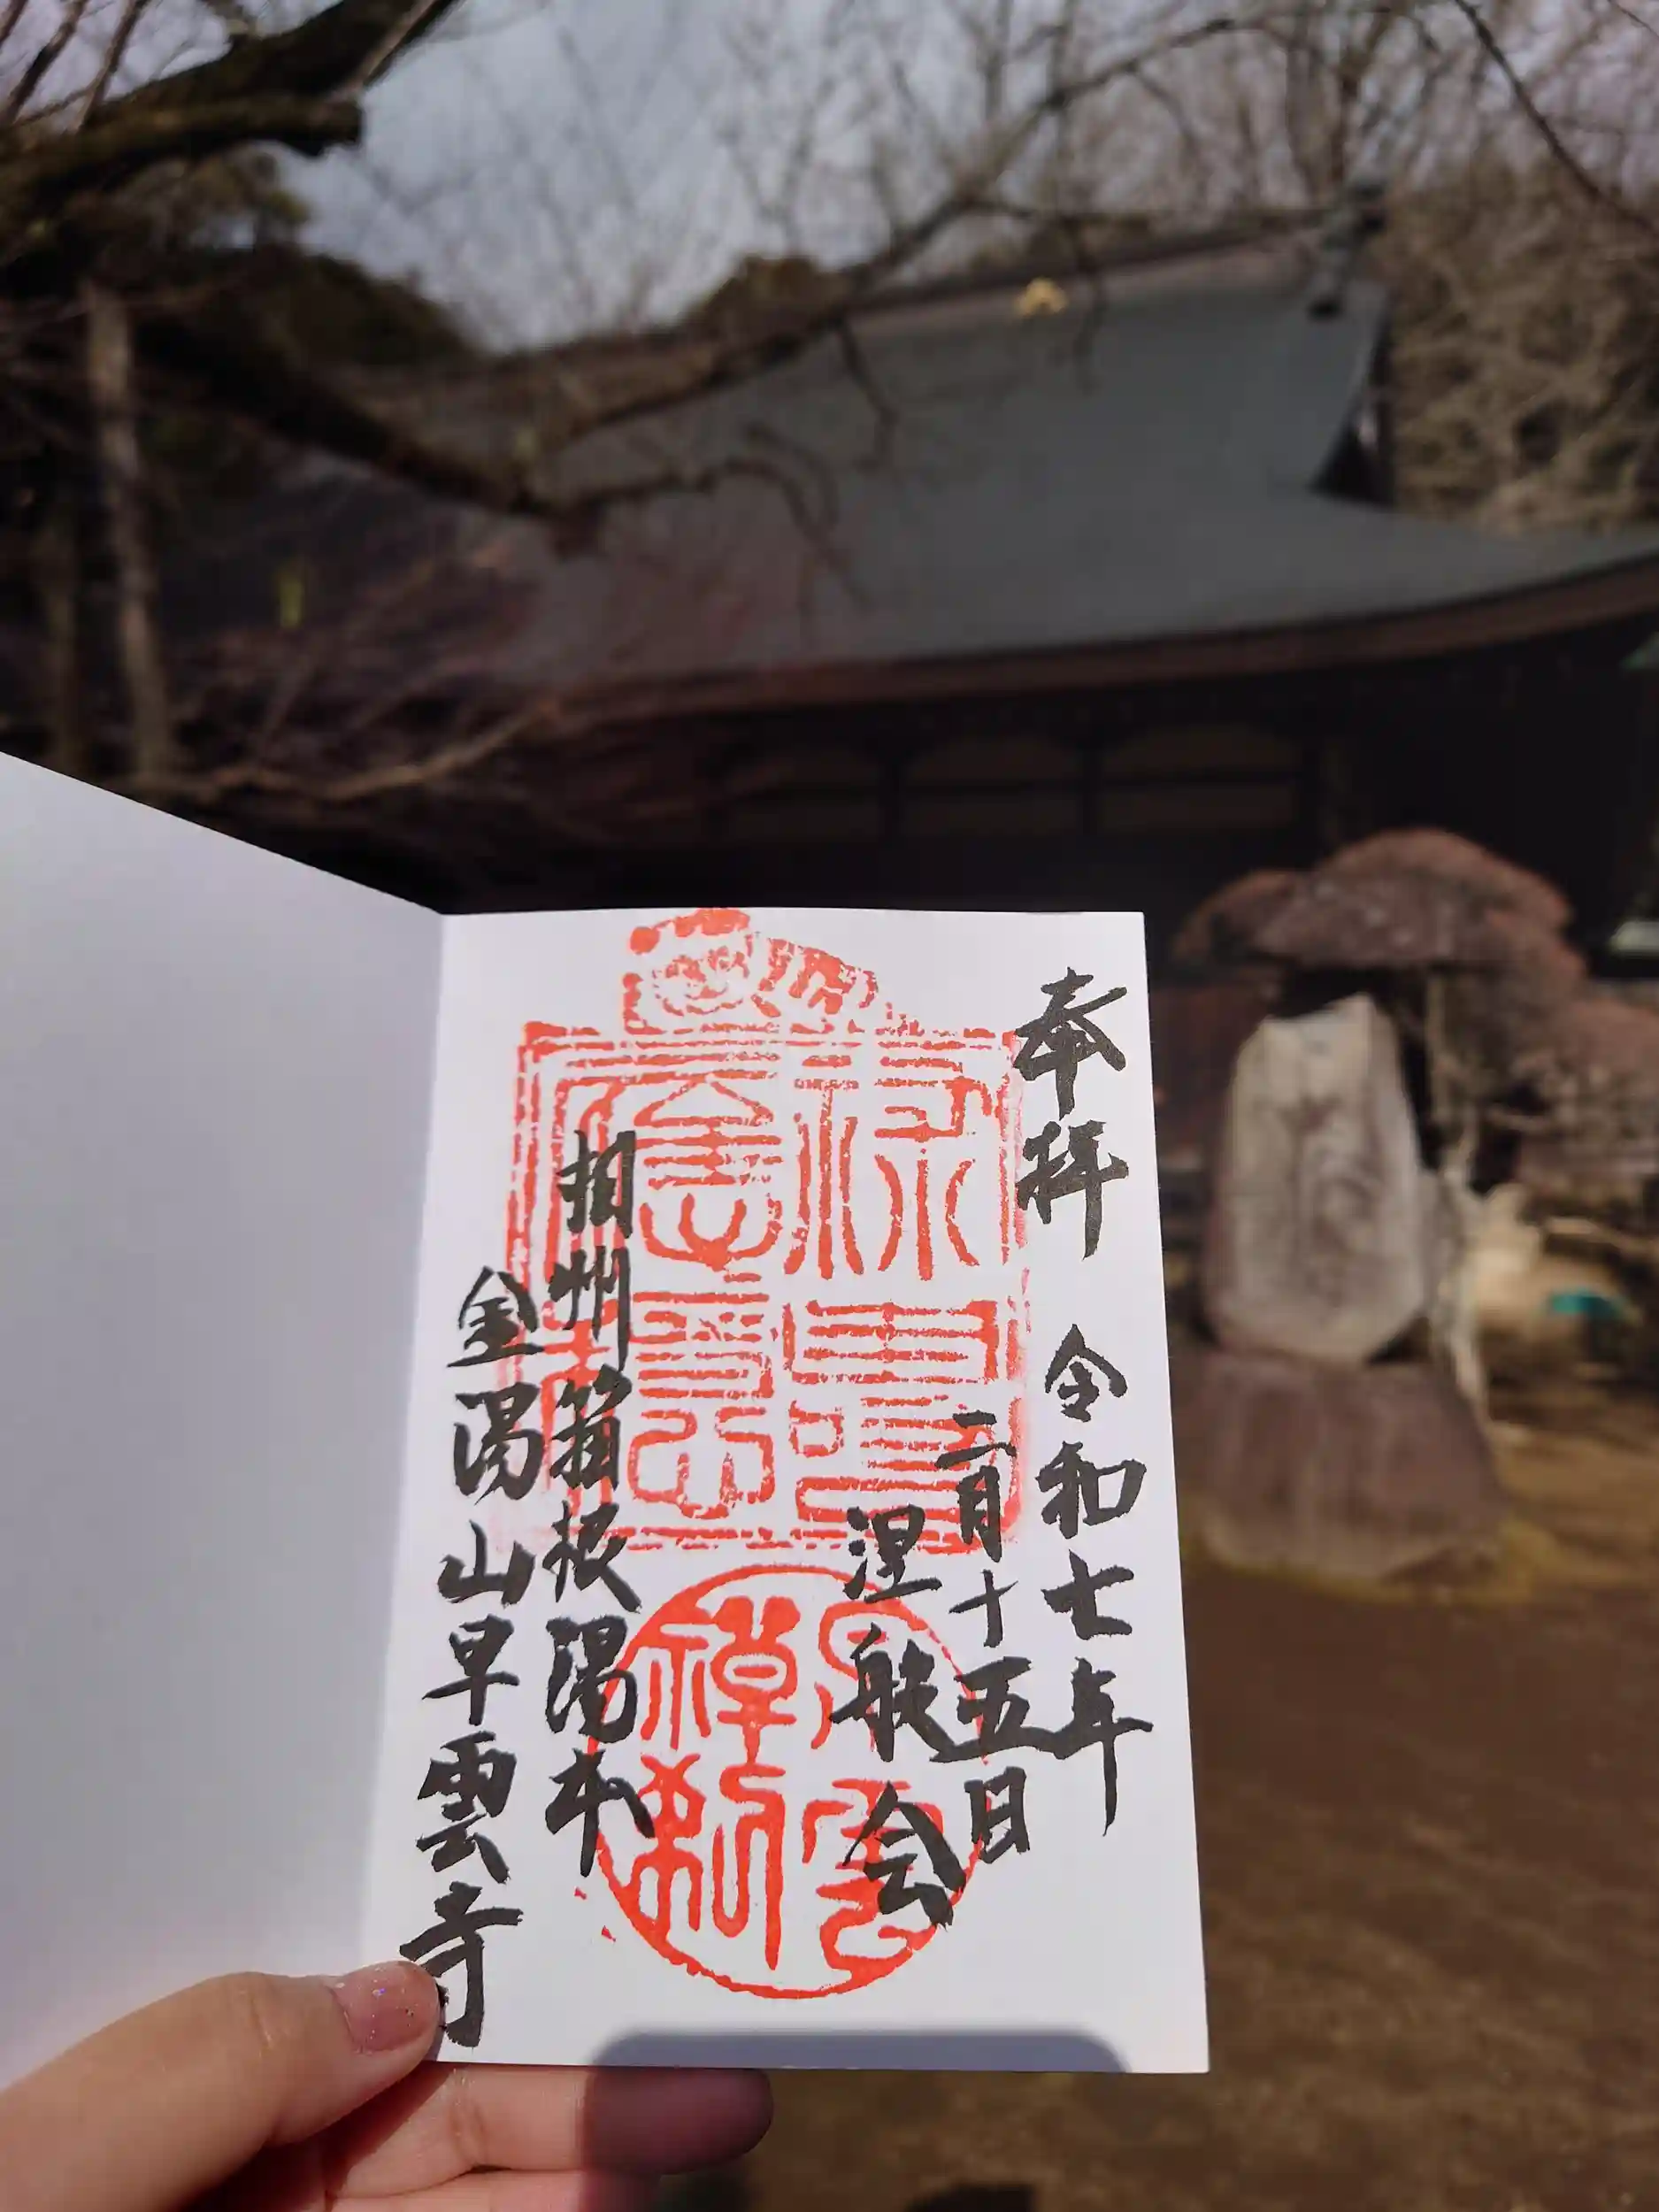 奉拝 令和七年
二月十五日
涅般会
相州箱根湯本
金湯山早雲寺
禄壽應穏